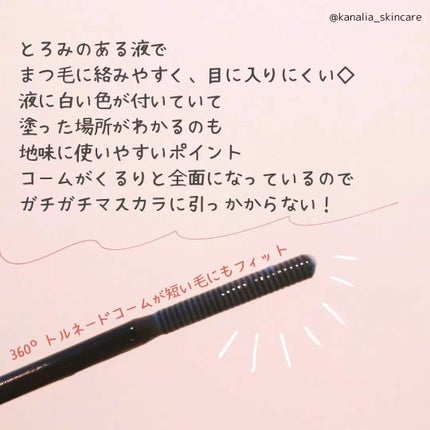 @kanalia_skincare
とろみのある液で
まつ毛に絡みやすく、目に入りにくい◇
液に白い色が付いていて
塗った場所がわかるのも
地味に使いやすいポイント
コームがくるりと全面になっているので
ガチガチマスカラに引っかからない！
360° トルネードコームが短い毛にもフィット